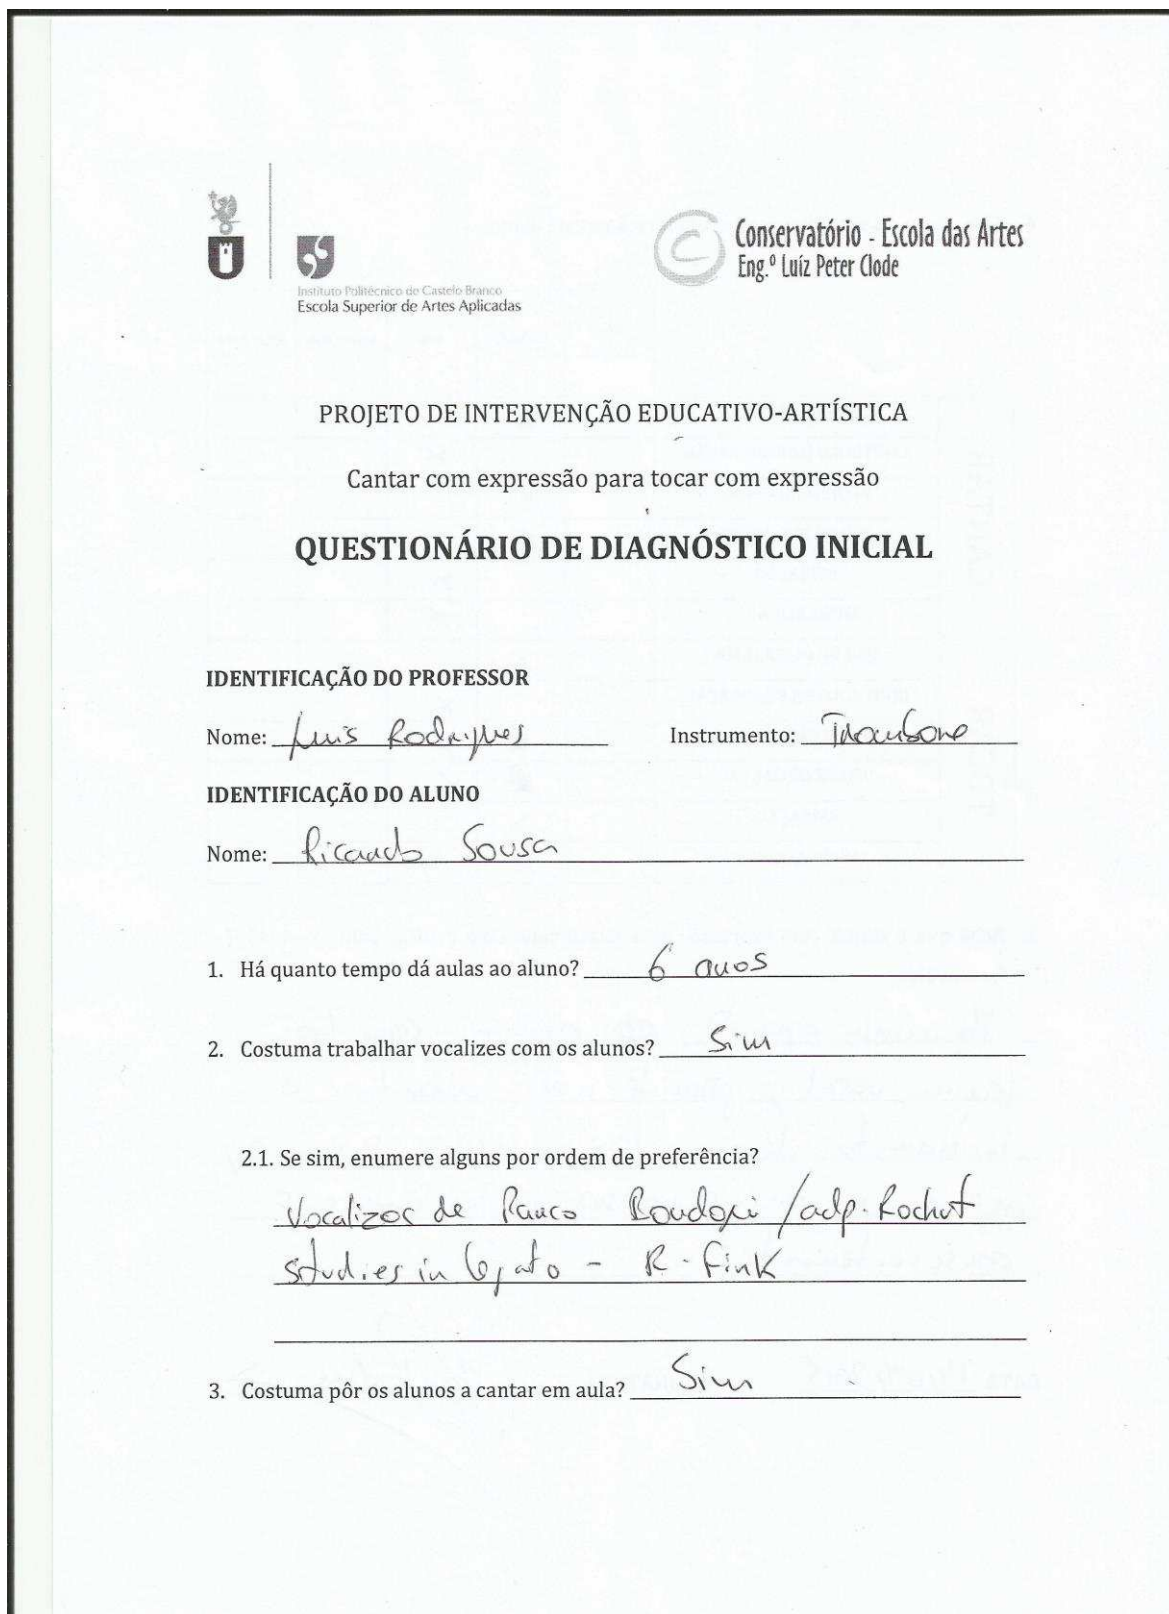 Instituto Politécnico de Castelo Branco
Escola Superior de Artes Aplicadas
Conservatório - Escola das Artes
Eng.º Luíz Peter Clode
PROJETO DE INTERVENÇÃO EDUCATIVO-ARTÍSTICA
Cantar com expressão para tocar com expressão
QUESTIONÁRIO DE DIAGNÓSTICO INICIAL
IDENTIFICAÇÃO DO PROFESSOR
Nome: Luis Rodrigues Instrumento: Trombone
IDENTIFICAÇÃO DO ALUNO
Nome: Ricardo Sousa
1. Há quanto tempo dá aulas ao aluno? 6 anos
2. Costuma trabalhar vocalizes com os alunos? Sim
2.1. Se sim, enumere alguns por ordem de preferência?
Vocalizos de Marco Bordogni / adp. Rochut
Studies in legato - R. Fink
3. Costuma pôr os alunos a cantar em aula? Sim